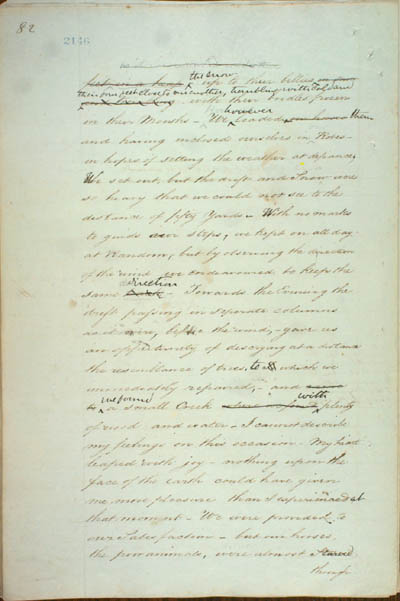 82
2146
the snow
up to their bellies
their poor feet close to one another, trembling with Cold and
with their bridles frozen
however
in their Mouths - We loaded them
and having inclosed ourselves in Robes -
in hopes of setting the weather at defiance,
We set out, but the drift and Snow was
so heavy that we could not see to the
distance of fifty Yards - With no marks
to guide our steps, we kept on all day
at Random, but by observing the direction
of the wind we endeavoured to keep the
direction
same Towards the Evening the
drift passing in separate columns
as it were, before the wind, - gave us
an opportunity of descrying at a distance
the resemblance of trees, to which we
immediately repaired, - and
we found with
a small Creek plenty
of wood and water - I cannot describe
my feelings on this occasion - My heart
leaped with joy - nothing upon the
face of the earth could have given
me more pleasure than I experienced at
that moment - We were provided to
our Satisfaction - but our horses,
the poor animals, were almost starved
though